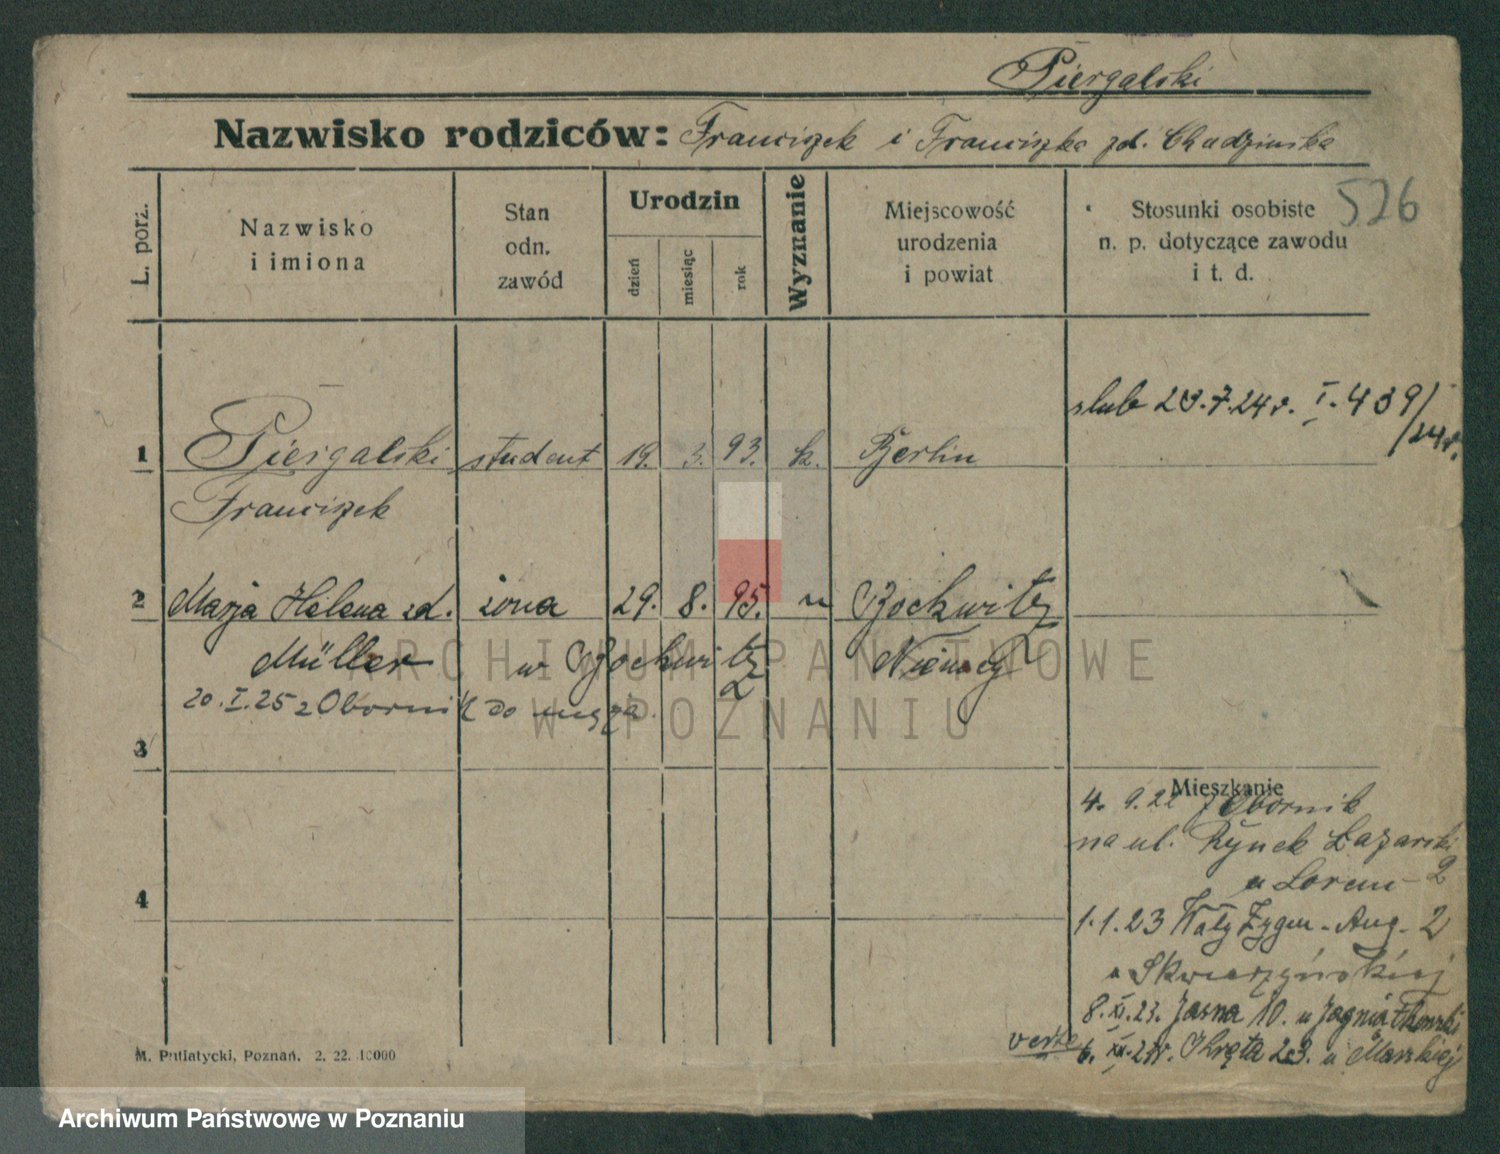 Piergalski
Nazwisko rodziców: Franciszek i Franciszka zd. Chudzińska
L. porz.
Nazwisko
i imiona
Stan
odn.
zawód
Urodzin
dzień
miesiąc
rok
Wyznanie
Miejscowość
urodzenia
i powiat
Stosunki osobiste
n. p. dotyczące zawodu
i t. d.
526
ślub 23.7.24 r. I. 439/24 r.
1 Piergalski student 19. 3. 93. k. Berlin
Franciszek
2 Marja Helena zd. żona 29. 8. 95. Bockwitz
Müller w Bockwitz Niemcy
20.I.25 z Obornik do męża.
3
4
Mieszkanie
4. 9. 22 z Obornik
na ul. Rynek Łazarski
u Loren 2
1.1.23 Wały Zygm. Aug. 2
u Skwierzyńskiej
8.XI.23. Jasna 10. u Jagniątkowski
verte
6. XII. 24 r. Kręta 23. u Maszkiej
M. Putiatycki, Poznań. 2. 22. 10000
ARCHIWUM PAŃSTWOWE
W POZNANIU
Archiwum Państwowe w Poznaniu